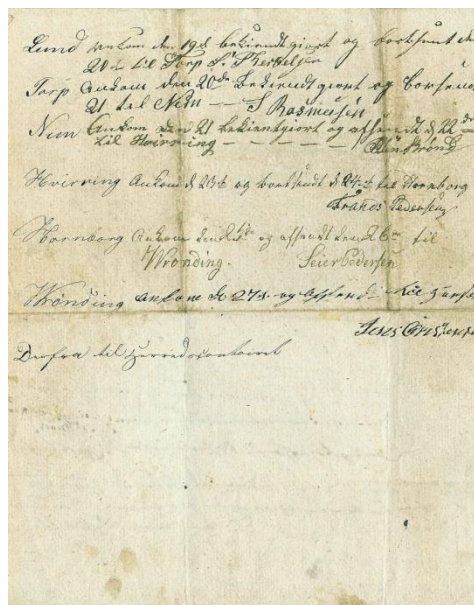 Lund ankom den 19d bekiendtgiort og bortsent den
20de til Torp S. Therkelsen
Torp Ankom den 20de Bekiendtgiort og borsendt
21 til Nim — S Rasmusen
Nim Ankom den 21 bekientgiort og afsendt d 22de
til Hvirring — — — — —
Hvirring Ankom d 23de og bortsendt d 24de til Hornborg
Frands Pedersen
Hornborg Ankom den og afsendt den 26de til
Wrønding. Seier Pedersen
Wrønding ankom d 27de og
Jens
Derfra til Herredscontoiret